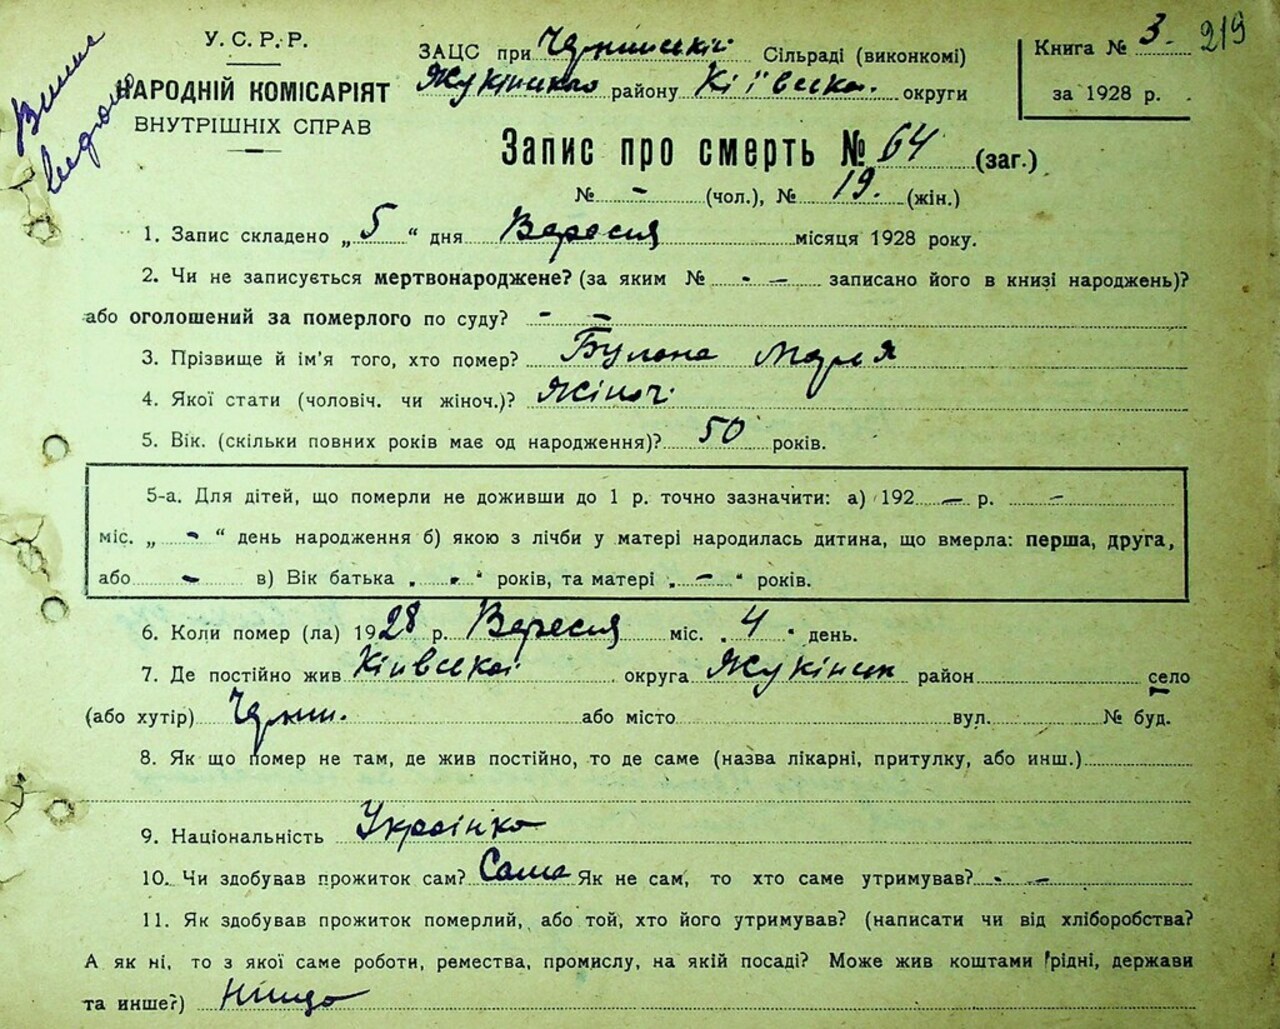 У. С. Р. Р.
НАРОДНІЙ КОМІСАРІЯТ
ВНУТРІШНІХ СПРАВ
ЗАЦС при Сільраді (виконкомі)
району Київська. округи
Книга № 3.
за 1928 р.
219
Запис про смерть № 64 (заг.)
№ - (чол.), № 19. (жін.)
1. Запис складено „ 5 “ дня Вересня місяця 1928 року.
2. Чи не записується мертвонароджене? (за яким № - — записано його в книзі народжень)?
або оголошений за померлого по суду? - —
3. Прізвище й ім’я того, хто помер? Марія
4. Якої стати (чоловіч. чи жіноч.)? Жіноч.
5. Вік. (скільки повних років має од народження)? 50 років.
5-а. Для дітей, що померли не доживши до 1 р. точно зазначити: а) 192 — р. —
міс. „ - “ день народження б) якою з лічби у матері народилась дитина, що вмерла: перша, друга,
або - в) Вік батька „ - “ років, та матері „ — “ років.
6. Коли помер (ла) 1928 р. Вересня міс. „ 4 “ день.
7. Де постійно жив Київської округа Жукінськ район село
(або хутір) або місто вул. № буд.
8. Як що помер не там, де жив постійно, то де саме (назва лікарні, притулку, або инш.)
9. Національність Українка
10. Чи здобував прожиток сам? Сама Як не сам, то хто саме утримував? - —
11. Як здобував прожиток померлий, або той, хто його утримував? (написати чи від хліборобства?
А як ні, то з якої саме роботи, ремества, промислу, на якій посаді? Може жив коштами рідні, держави
та инше?)